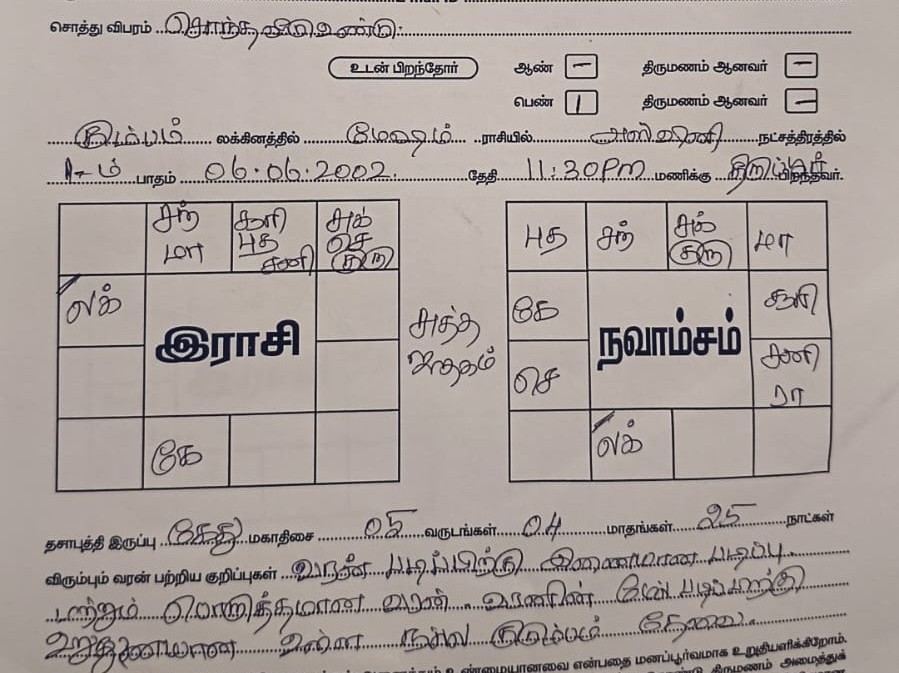 சொத்து விபரம் சொந்த வீடு உண்டு.
உடன் பிறந்தோர் ஆண் – திருமணம் ஆனவர் –
பெண் 1 திருமணம் ஆனவர் –
கும்பம் லக்கினத்தில் மேஷம் ராசியில் அஸ்வினி நட்சத்திரத்தில்
1-ம் பாதம் 06.06.2002. தேதி 11:30PM மணிக்கு திருப்பூர் பிறந்தவர்.
சந் சூரி சுக்
மா புத செ
சனி குரு
லக்
இராசி
கே
சுத்த
ஜாதகம்
புத சந் சுக் மா
குரு
கே சூரி
நவாம்சம்
செ சனி
ரா
லக்
தசாபுத்தி இருப்பு கேது மகாதிசை 05 வருடங்கள் 04 மாதங்கள் 25 நாட்கள்
விரும்பும் வரன் பற்றிய குறிப்புகள் வரன் படிப்பிற்கு இணையான படிப்பு
மற்றும் பொருத்தமான வரன். வரனின் மேல் படிப்பிற்கு
உறுதுணையான உள்ள நல்ல குடும்பம் தேவை.
உண்மையானவை என்பதை மனப்பூர்வமாக உறுதியளிக்கிறோம்.
திருமணம் அமைத்துக்